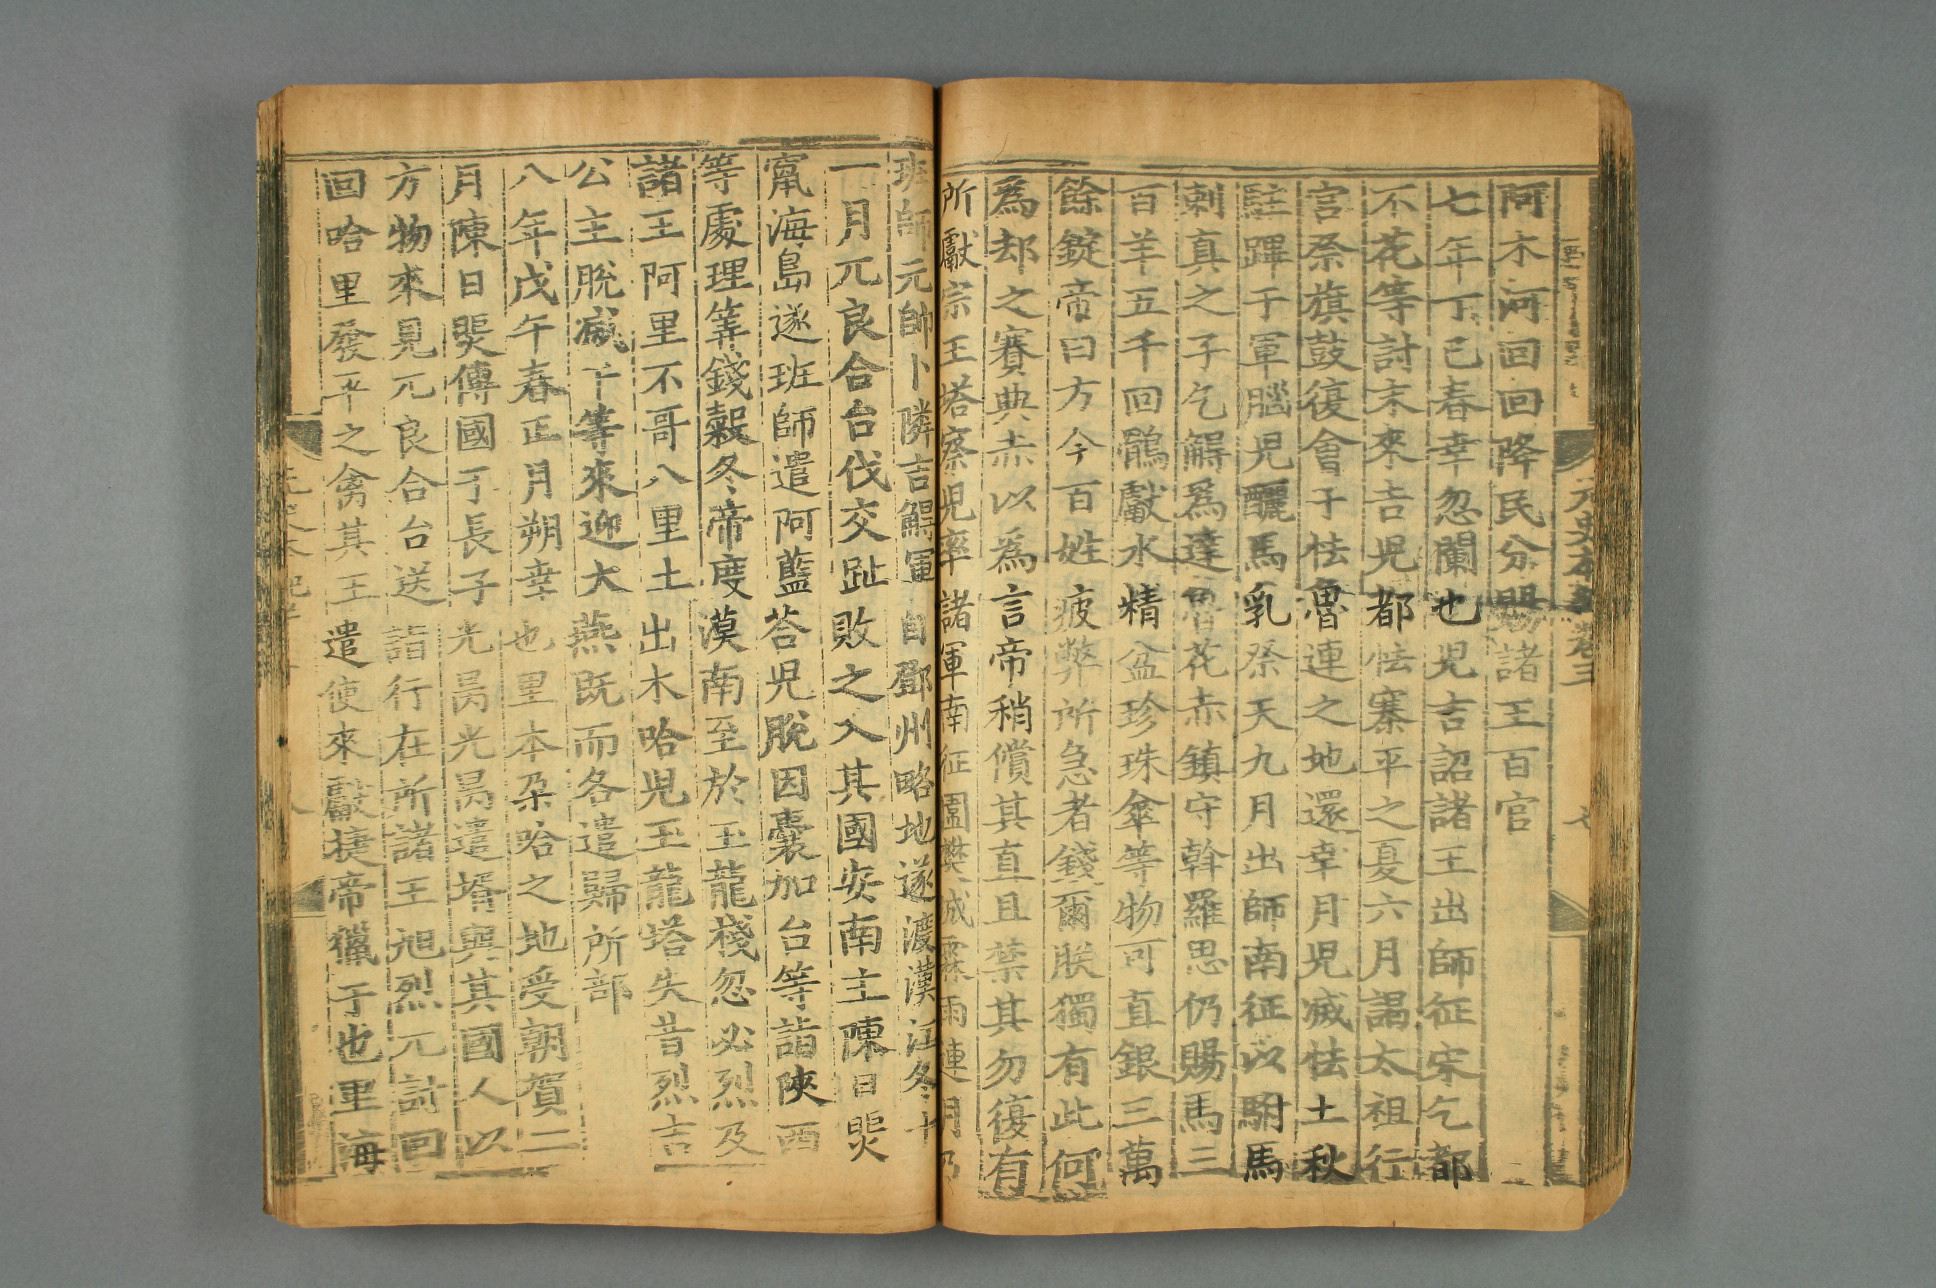 元史本紀卷三
阿木河回回降民分賜諸王百官
七年丁巳春幸忽闌也児吉詔諸王出師征宋乞都
不花等討末來吉児都怯寨平之夏六月謁太祖行
宮祭旗鼓復會于怯魯連之地還幸月児㓕怯土秋
駐蹕于軍腦児釃馬乳祭天九月出師南征以駙馬
剌真之子乞䚟爲達魯花赤鎮守斡羅思仍賜馬三
百羊五千回鶻獻水精盆珍珠傘等物可直銀三萬
餘錠帝曰方今百姓疲弊所急者錢爾朕獨有此何
爲却之賽典赤以爲言帝稍償其直且禁其勿復有
所獻宗王塔察児率諸軍南征圍樊城霖雨連月乃
班師元帥卜隣吉䚟軍自鄧州略地遂渡漢江冬十
一月兀良合台伐交趾敗之入其國安南主陳日煚
竄海島遂班師遣阿藍荅児脫因囊加台等詣陝西
等處理筭錢穀冬帝度漠南至於玉龍棧忽必烈及
諸王阿里不哥八里土出木哈児玉龍塔失昔烈吉
公主脫㓕干等來迎大燕旣而各遣歸所部
八年戊午春正月朔幸也里本朶哈之地受朝賀二
月陳日煚傳國于長子光昺光昺遣壻與其國人以
方物來見兀良合台送詣行在所諸王旭烈兀討回
回哈里發平之禽其王遣使來獻捷帝獵于也里海